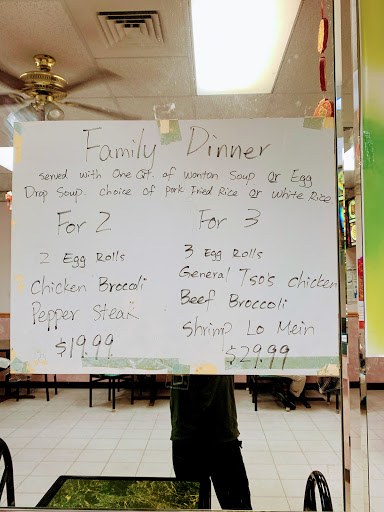 Family Dinner
served with One Qt. of Wonton Soup or Egg
Drop Soup. choice of pork Fried Rice or White Rice
For 2
2 Egg Rolls
Chicken Brocoli
Pepper Steak
$19.99
For 3
3 Egg Rolls
General Tso's chicken
Beef Broccoli
Shrimp Lo Mein
$29.99